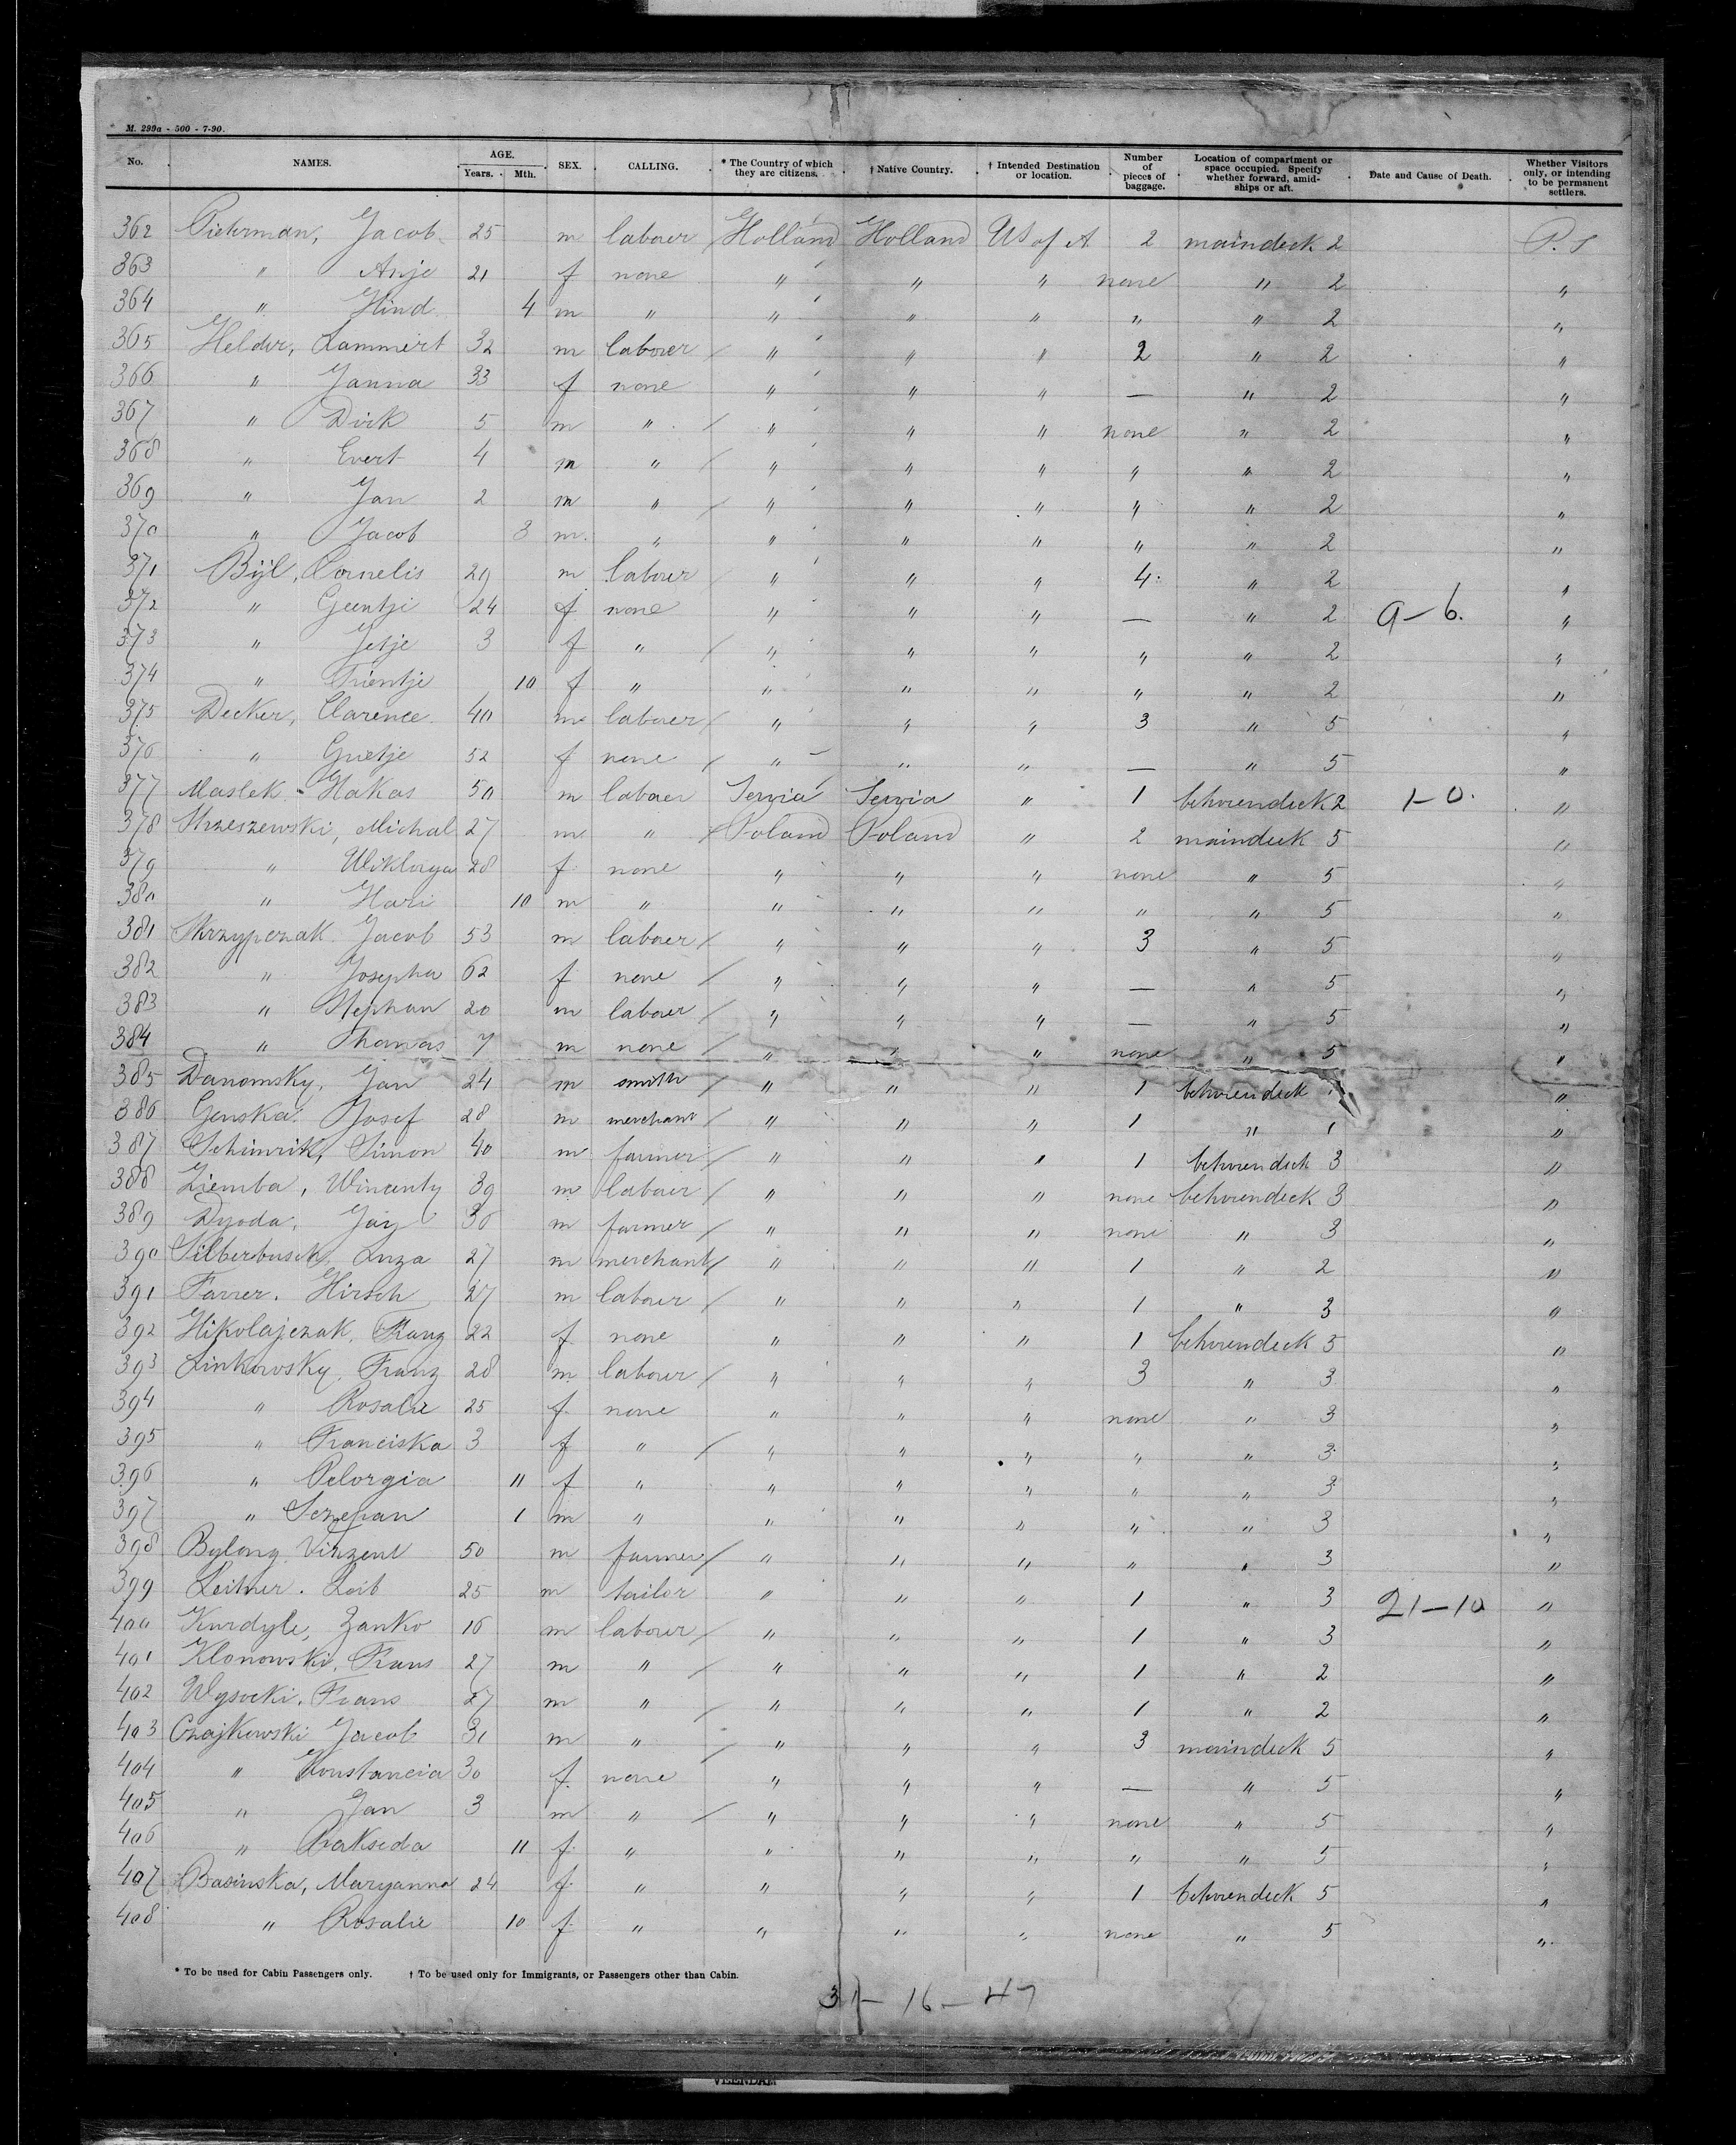 M. 299a - 500 - 7-90.
No. NAMES. AGE. Years. Mth. SEX. CALLING. * The Country of which they are citizens. † Native Country. † Intended Destination or location. Number of pieces of baggage. Location of compartment or space occupied. Specify whether forward, amidships or aft. Date and Cause of Death. Whether Visitors only, or intending to be permanent settlers.
362 Pieterman, Jacob 25 m labouer Holland Holland US of A 2 maindeck 2 P.S
363 " Anje 21 f none " " " none " 2 "
364 " Hind 4 m " " " " " " 2 "
365 Helder, Lammert 32 m labouer " " " 2 " 2 "
366 " Janna 33 f none " " " — " 2 "
367 " Dirk 5 m " " " " none " 2 "
368 " Evert 4 m " " " " " " 2 "
369 " Jan 2 m " " " " " " 2 "
370 " Jacob 3 m " " " " " " 2 "
371 Bijl, Cornelis 29 m labouer " " " 4 " 2 "
372 " Geentji 24 f none " " " — " 2 9-6. "
373 " Jetje 3 f " " " " " " 2 "
374 " Trientje 10 f " " " " " " 2 "
375 Decker, Clarence 40 m labouer " " " 3 " 5 "
376 " Grietje 52 f none " " " — " 5 "
377 Maslek - Hakas 50 m labouer Servia Servia " 1 betweendeck 2 1-0. "
378 Strzeszewski, Michal 27 m " Poland Poland " 2 maindeck 5 "
379 " Wiktorya 28 f none " " " none " 5 "
380 " Hari 10 m " " " " " " 5 "
381 Skrzypczak Jacob 53 m labouer " " " 3 " 5 "
382 " Josepha 62 f none " " " — " 5 "
383 " Stephan 20 m labouer " " " — " 5 "
384 " Thomas 7 m none " " " none " 5 "
385 Danomsky, Jan 24 m smith " " " 1 betweendeck 1 "
386 Genska, Josef 28 m merchant " " " 1 " 1 "
387 Schimrik, Simon 40 m farmer " " " 1 betweendeck 3 "
388 Ziemba, Wincenty 39 m labouer " " " none betweendeck 3 "
389 Dyoda, Jay 36 m farmer " " " none " 3 "
390 Silberbusch, Luza 27 m merchant " " " 1 " 2 "
391 Farrer, Hirsch 27 m labouer " " " 1 " 3 "
392 Hikolajczak, Franz 22 f none " " " 1 betweendeck 5 "
393 Linkowsky, Franz 28 m labouer " " " 3 " 3 "
394 " Rosalie 25 f none " " " none " 3 "
395 " Franciska 3 f " " " " " " 3 "
396 " Pelorgia 11 f " " " " " " 3 "
397 " Sczepan 1 m " " " " " " 3 "
398 Bylong Vinzent 50 m farmer " " " " " 3 "
399 Leitner, Leib 25 m tailor " " " 1 " 3 21-10 "
400 Kurdyle, Zanko 16 m labouer " " " 1 " 3 "
401 Klonowski, Frans 27 m " " " " 1 " 2 "
402 Wysocki, Frans 27 m " " " " 1 " 2 "
403 Czajkowski Jacob 31 m " " " " 3 maindeck 5 "
404 " Konstancia 30 f none " " " — " 5 "
405 " Jan 3 m " " " " none " 5 "
406 " Prakseda 11 f " " " " " " 5 "
407 Basinska, Maryanna 24 f " " " " 1 betweendeck 5 "
408 " Rosalie 10 f " " " " none " 5 "
* To be used for Cabin Passengers only. † To be used only for Immigrants, or Passengers other than Cabin.
31-16-47
VEENDAM